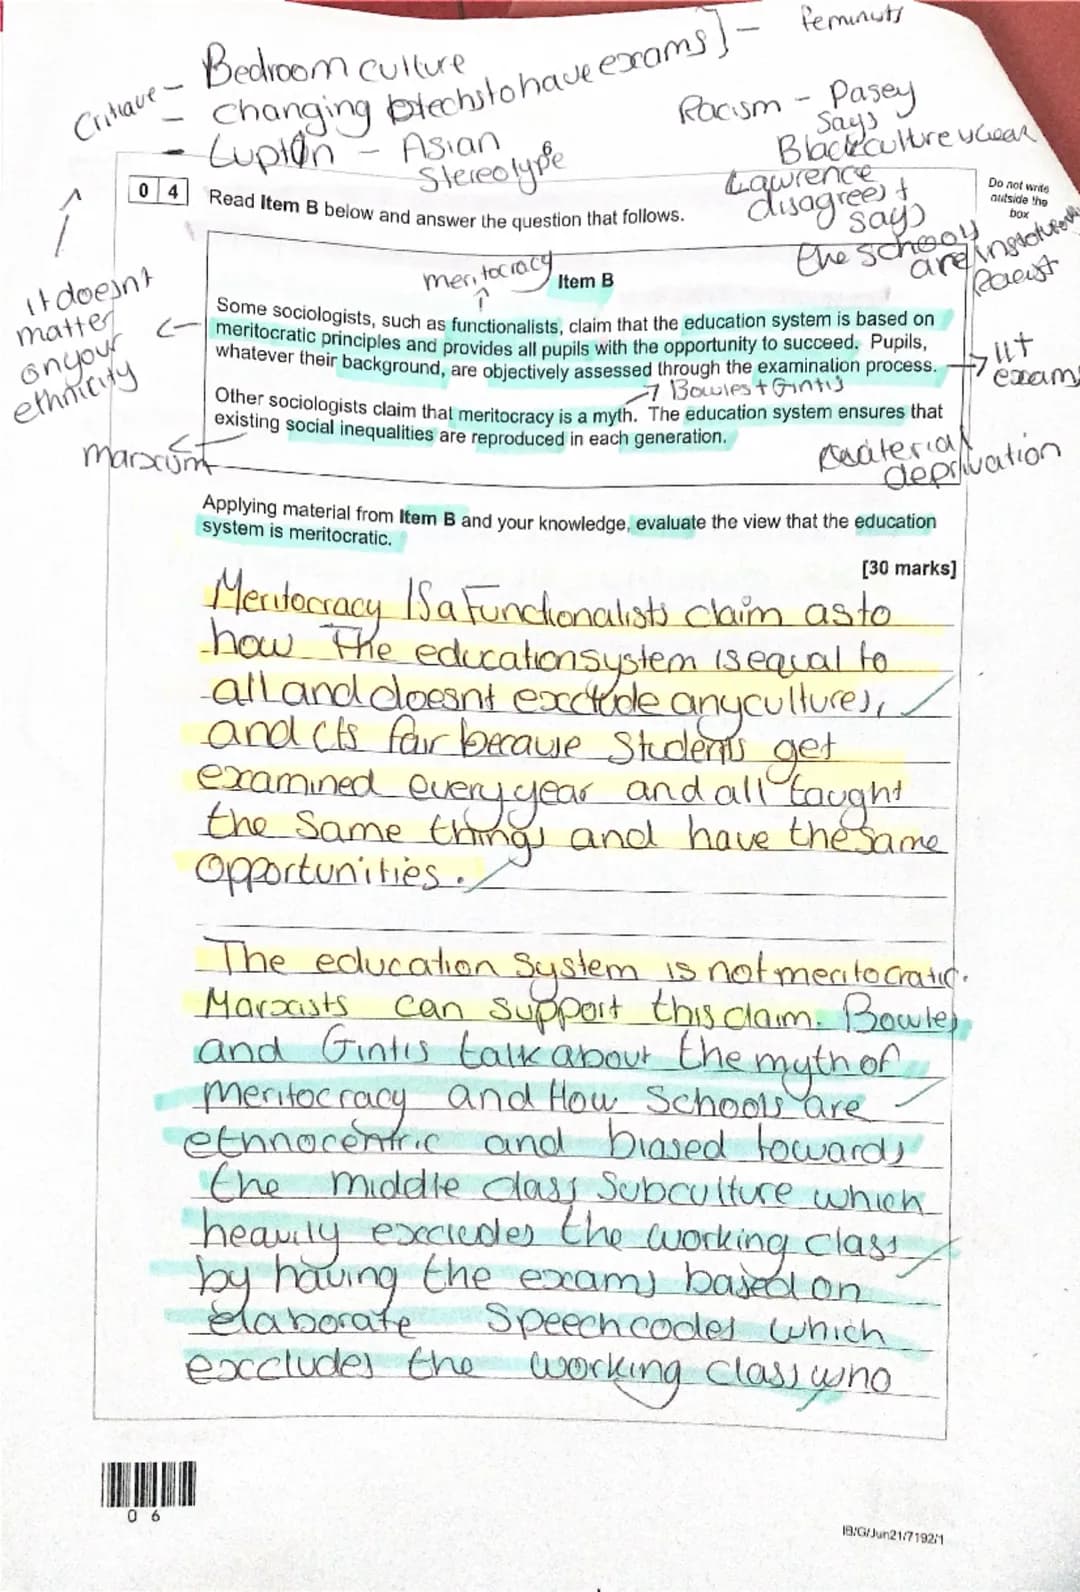 Critique - Bedroom culture
- changing btechs to have exams] - feminists
- Lupton - Asian
Stereotype
Racism - Pasey
says
Black culture weak
Lawrence
disagrees +
says
the school
are institutionally
Racist
0 4 Read Item B below and answer the question that follows.
Do not write
outside the
box
meritocracy
Item B
Some sociologists, such as functionalists, claim that the education system is based on
meritocratic principles and provides all pupils with the opportunity to succeed. Pupils,
whatever their background, are objectively assessed through the examination process.
→ Bowles + Gintis
Other sociologists claim that meritocracy is a myth. The education system ensures that
existing social inequalities are reproduced in each generation.
It doesnt
matter
on your
ethnicity
marxism
exams
material
deprivation
Applying material from Item B and your knowledge, evaluate the view that the education
system is meritocratic.
[30 marks]
Meritocracy is a Functionalists claim as to
how the education system is equal to
all and doesnt exclude any cultures,
and its fair because students get
examined every year and all taught
the same things and have the same
opportunities.
The education system is not meritocratic.
Marxists can support this claim. Bowles
and Gintis talk about the myth of
meritocracy and How Schools are
ethnocentric and biased towards
the middle class subculture which
heavily excludes the working class
by having the exams based on
elaborate speech codes which
exccludes the working class who
0 6
IB/G/Jun21/7192/1